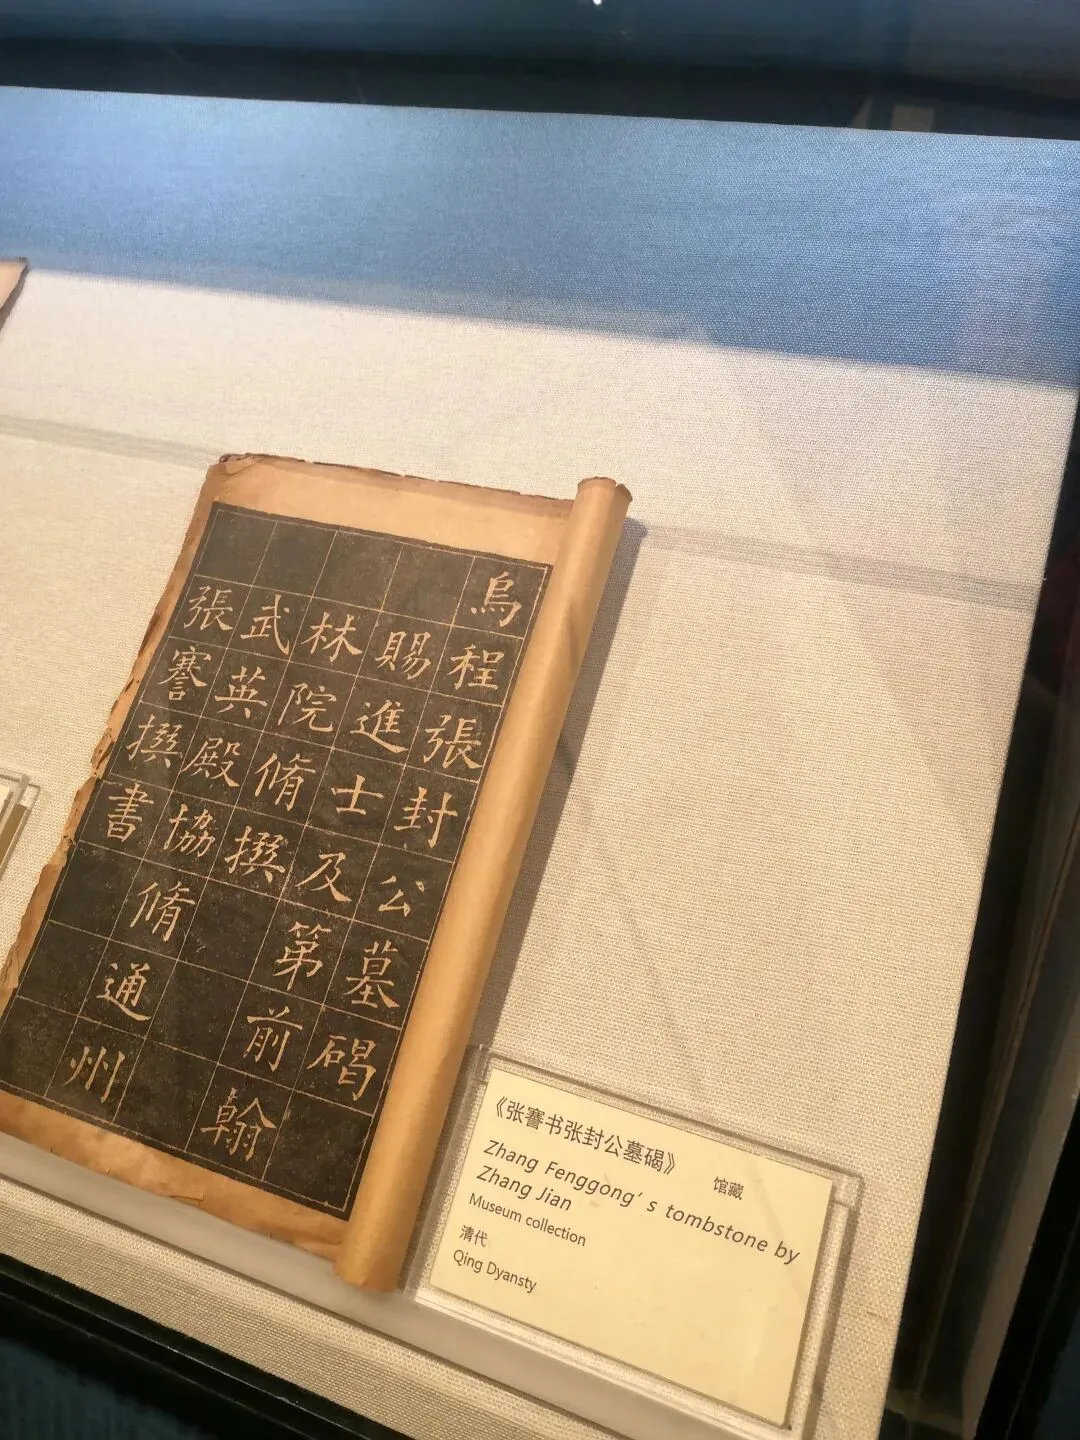 烏程張封公墓碣
賜進士及第前翰
林院脩撰
武英殿協脩通州
張謇撰書
《张謇书张封公墓碣》 馆藏
Zhang Fenggong's tombstone by
Zhang Jian
Museum collection
清代
Qing Dyansty